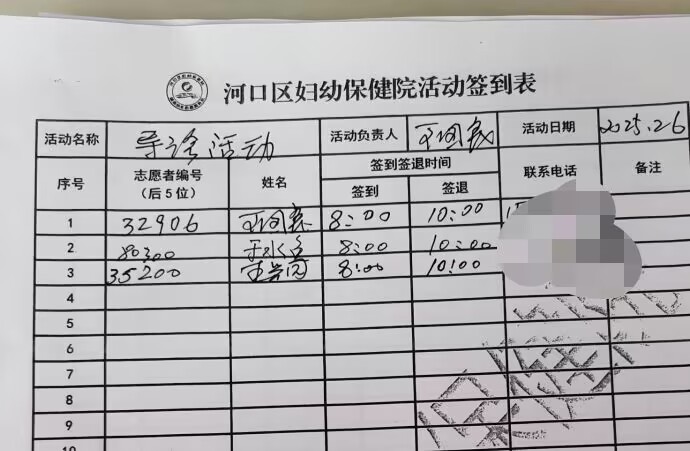 河口区妇幼保健院活动签到表
活动名称 导诊活动 活动负责人 活动日期 2025.2.6
序号 志愿者编号（后5位） 姓名 签到签退时间 联系电话 备注
签到 签退
1 32906 8:00 10:00
2 80300 于水 8:00 10:00
3 35200 8:00 10:00
4
5
6
7
8
9
10